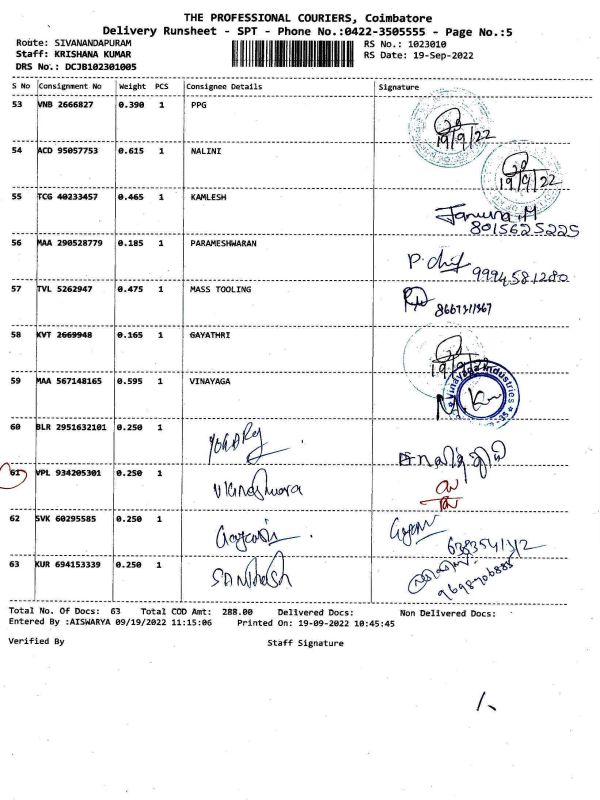 THE PROFESSIONAL COURIERS, Coimbatore
Delivery Runsheet - SPT - Phone No.:0422-3505555 - Page No.:5
Route: SIVANANDAPURAM RS No.: 1023010
Staff: KRISHANA KUMAR RS Date: 19-Sep-2022
DRS No.: DCJB102301005
S No Consignment No Weight PCS Consignee Details Signature
53 VNB 2666827 0.390 1 PPG
19/9/22
54 ACD 95057753 0.615 1 NALINI
19/9/22
55 TCG 40233457 0.465 1 KAMLESH
8015625225
56 MAA 290528779 0.185 1 PARAMESHWARAN
9994581280
57 TVL 5262947 0.475 1 MASS TOOLING
58 KVT 2669948 0.165 1 GAYATHRI
19/9/22
59 MAA 567148165 0.595 1 VINAYAGA
Vinayaga Industries
60 BLR 2951632101 0.250 1
61 VPL 934205301 0.250 1
62 SVK 60295585 0.250 1
63 KUR 694153339 0.250 1 Santhosh
Total No. Of Docs: 63 Total COD Amt: 288.00 Delivered Docs: Non Delivered Docs:
Entered By :AISWARYA 09/19/2022 11:15:06 Printed On: 19-09-2022 10:45:45
Verified By Staff Signature